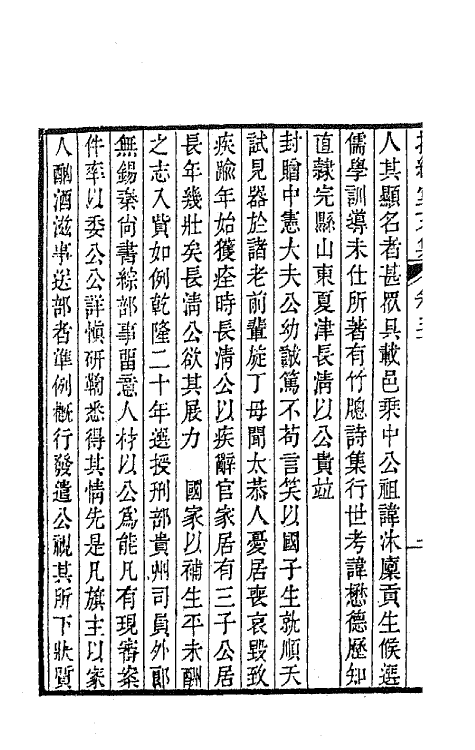 人其顯名者甚眾具載邑乘中公祖諱沐廩貢生候選
儒學訓導未仕所著有竹牕詩集行世考諱懋德歷知
直隸完縣山東夏津長清以公貴竝
封贈中憲大夫公幼誠篤不苟言笑以國子生就順天
試見器於諸老前輩旋丁母閻太恭人憂居喪哀毀致
疾踰年始獲痊時長清公以疾辭官家居有三子公居
長年幾壯矣長清公欲其展力　國家以補生平未酬
之志入貲如例乾隆二十年選授刑部貴州司員外郎
無錫秦尚書綜部事畱意人材以公爲能凡有現審案
件率以委公公詳愼硏鞫悉得其情先是凡旗主以家
人酗酒滋事送部者準例槪行發遣公視其所下狀質